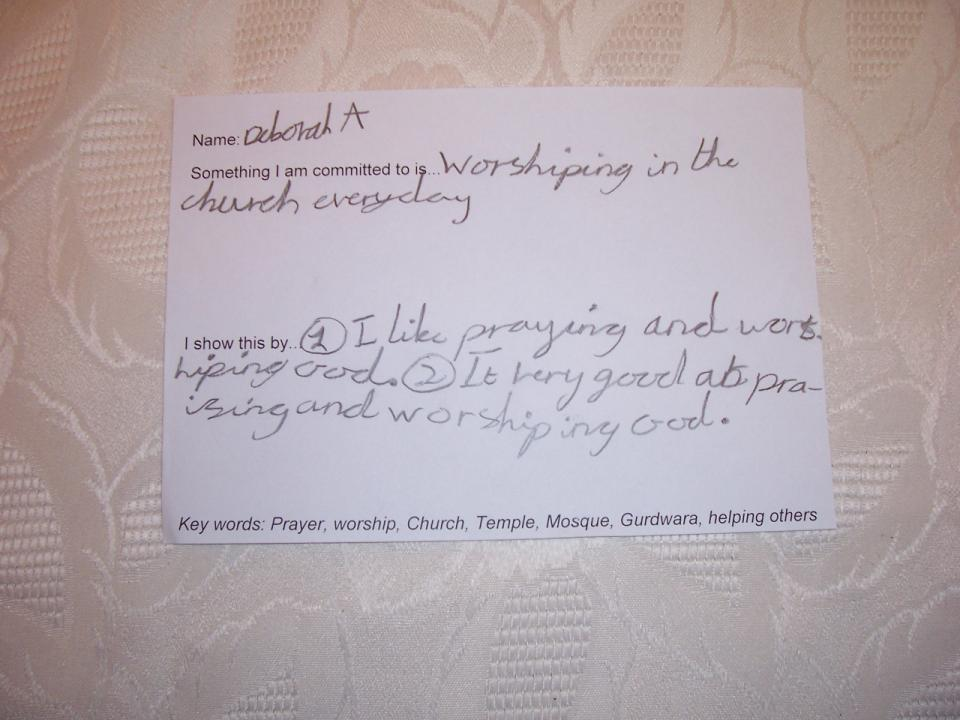 Name: Deborah A
Something I am committed to is... Worshiping in the
church everyday
I show this by... 1 I like praying and wors-
hiping God. 2 It very good at pra-
ising and worshiping God.
Key words: Prayer, worship, Church, Temple, Mosque, Gurdwara, helping others